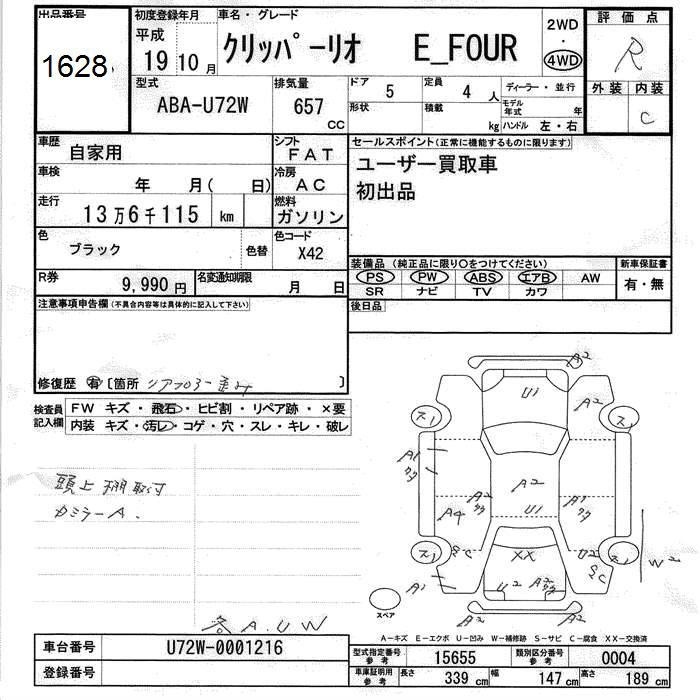 出品番号
1628
初度登録年月
平成
19 10 月
車名・グレード
クリッパーリオ E_FOUR
2WD
・
4WD
評価点
R
外装 内装
C
型式
ABA-U72W
排気量
657
CC
ドア
5
定員
4 人
形状
積載
kg
ディーラー・並行
モデル年式 年
ハンドル 左・右
車歴
自家用
シフト
FAT
車検
年 月( 日)
冷房
AC
走行
13万6千115 km
燃料
ガソリン
色
ブラック
色替
色コード
X42
R券
9,990 円
名変通知期限
月 日
セールスポイント(正常に機能するものに限ります)
ユーザー買取車
初出品
装備品(純正品に限り○をつけてください)
PS PW ABS エアB AW
SR ナビ TV カワ
新車保証書
有・無
後日品
注意事項申告欄(不具合内容等は具体的に記入して下さい)
修復歴 有 [箇所 リアフロアー歪み ]
検査員
記入欄
FW キズ・飛石・ヒビ割・リペア跡・×要
内装 キズ・汚レ・コゲ・穴・スレ・キレ・破レ
頭上棚取付
カミラーA.
各A.U W
A2
U1
A2
ス1
ス1
A1
A2
A2
A1
A4
U1
ス1
XX
U2
ス1
W2
A1
U2
A2
A2
A2
スペア
A-キズ E-エクボ U-凹み W-補修跡 S-サビ C-腐食 XX-交換済
車台番号
U72W-0001216
登録番号
型式指定番号
参考
15655
類別区分番号
参考
0004
車庫証明用
参考
長さ
339 cm
幅
147 cm
高さ
189 cm